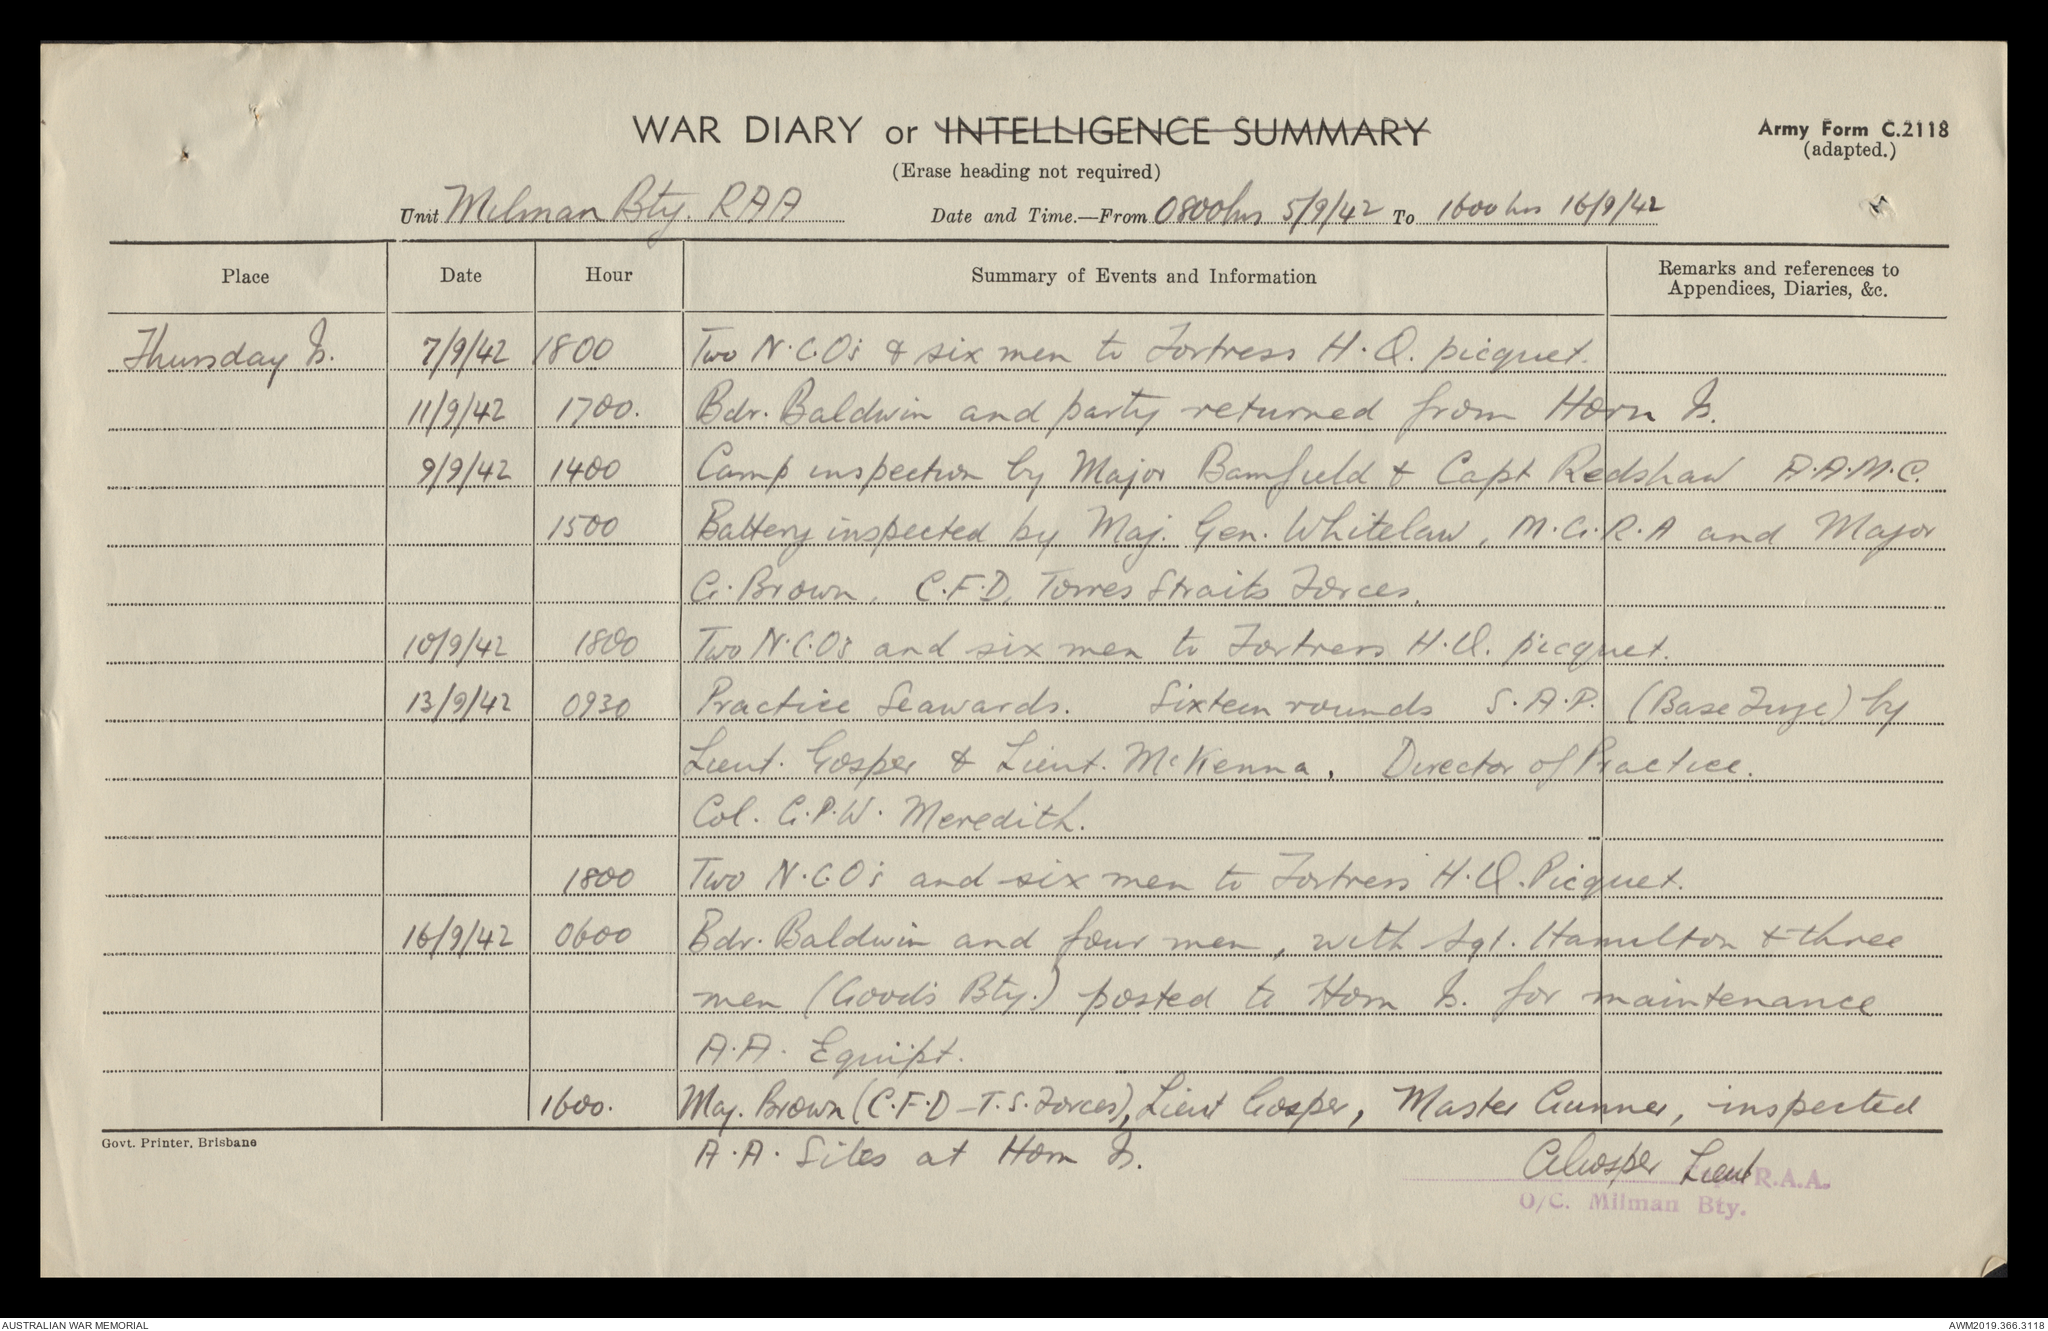 WAR DIARY or INTELLIGENCE SUMMARY
Army Form C.2118
(adapted.)
(Erase heading not required)
Unit Milman Bty. RAA Date and Time.—From 0800hrs 5/9/42 To 1600hrs 16/9/42
Place Date Hour Summary of Events and Information Remarks and references to Appendices, Diaries, &c.
Thursday Is. 7/9/42 1800 Two N.C.O's & six men to Fortress H.Q. picquet.
11/9/42 1700. Bdr. Baldwin and party returned from Horn Is.
9/9/42 1400 Camp inspection by Major Bamfield & Capt Redshaw A.A.M.C.
1500 Battery inspected by Maj. Gen. Whitelaw, M.G.R.A and Major
G. Brown, C.F.D, Torres Straits Forces.
10/9/42 1800 Two N.C.O's and six men to Fortress H.Q. picquet.
13/9/42 0930 Practice Seawards. Sixteen rounds S.A.P. (Base Fuze) by
Lieut. Gosper & Lieut. McKenna. Director of Practice.
Col. G.P.W. Meredith.
1800 Two N.C.O's and six men to Fortress H.Q. Picquet.
16/9/42 0600 Bdr. Baldwin and four men, with Sgt. Hamilton & three
men (Goods Bty.) posted to Horn Is. for maintenance
A.A. Equipt.
1600. Maj. Brown (C.F.D - T.S. Forces), Lieut Gosper, Master Gunner, inspected
Govt. Printer, Brisbane
A.A. Sites at Horn Is.
Gosper Lieut R.A.A.
O/C. Milman Bty.
AUSTRALIAN WAR MEMORIAL
AWM2019.366.3118